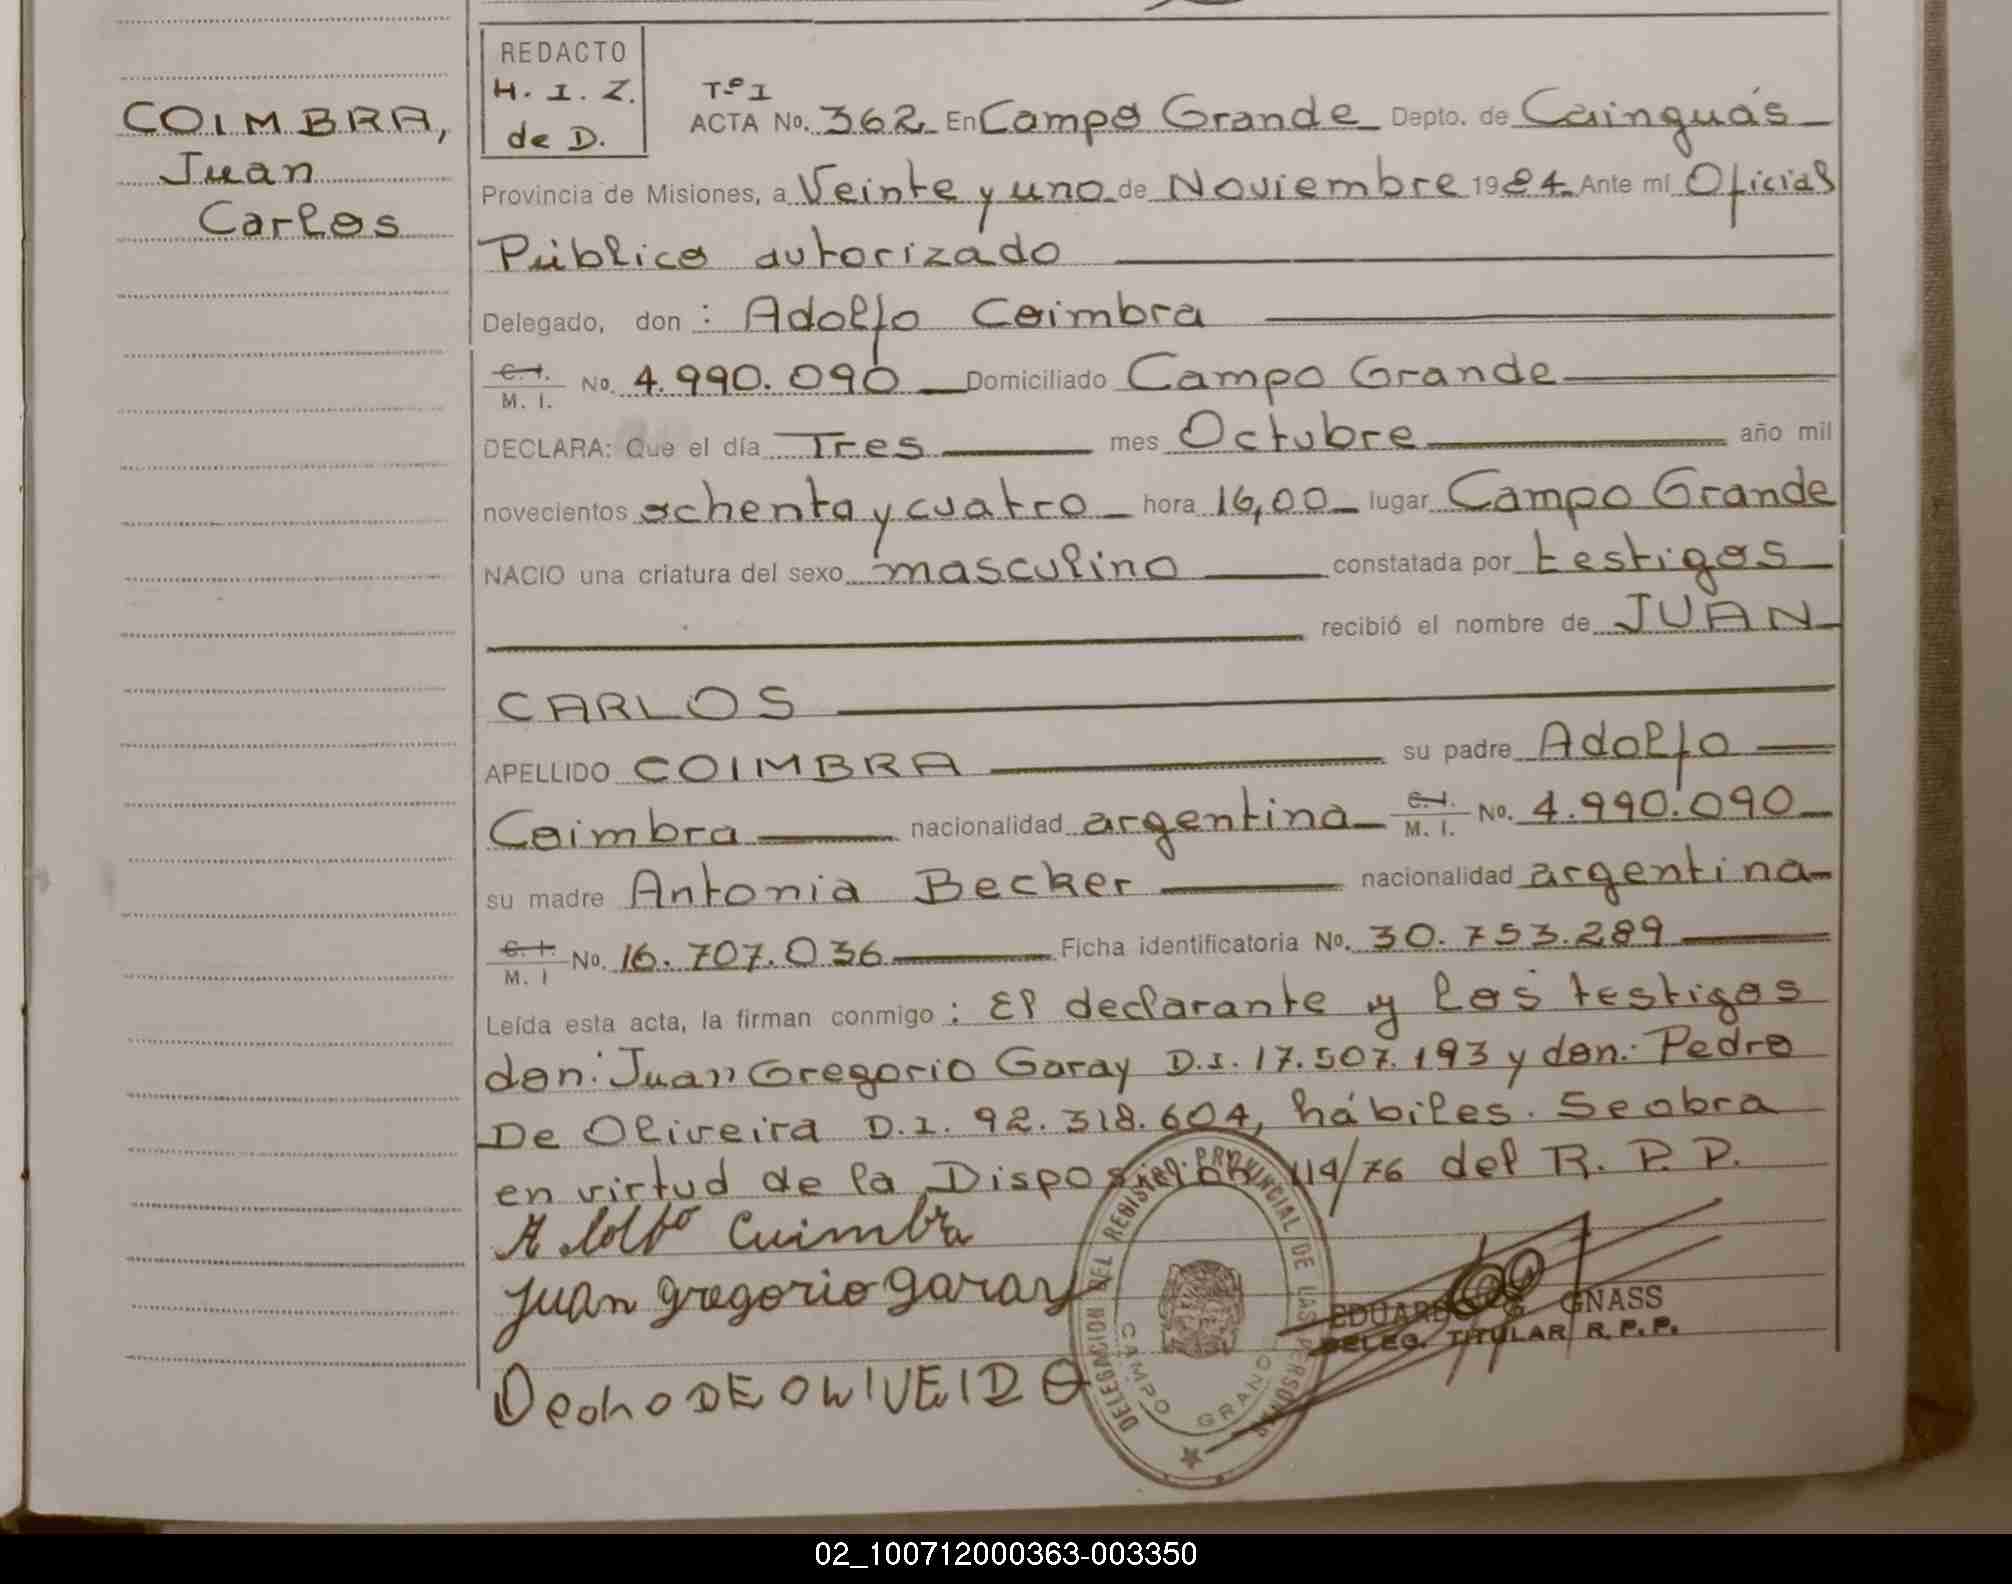 COIMBRA,
Juan
Carlos
REDACTO
H. I. Z.
de D.
Tº I
ACTA No. 362 En Campo Grande Depto. de Cainguás
Provincia de Misiones, a Veinte y uno de Noviembre 1984 Ante mí Oficial
Público autorizado
Delegado, don : Adolfo Coimbra
C. I.
M. I. No. 4.990.090 Domiciliado Campo Grande
DECLARA: Que el día Tres mes Octubre año mil
novecientos ochenta y cuatro hora 16,00 lugar Campo Grande
NACIO una criatura del sexo masculino constatada por testigos
recibió el nombre de JUAN
CARLOS
APELLIDO COIMBRA su padre Adolfo
Coimbra nacionalidad argentina C. I. M. I. No. 4.990.090
su madre Antonia Becker nacionalidad argentina
C. I.
M. I No. 16.707.036 Ficha identificatoria No. 30.753.289
Leída esta acta, la firman conmigo : El declarante y los testigos
don: Juan Gregorio Garay D.I. 17.507.193 y don: Pedro
De Oliveira D.I. 92.318.604, hábiles. Se obra
en virtud de la Disposición 114/76 del R. P. P.
Adolfo Cuimbra
Juan gregorio garay
DE OLIVEIRA
DELEGACION DEL REGISTRO PROVINCIAL DE LAS PERSONAS
CAMPO GRANDE
EDUARDO G. GNASS
DELEG. TITULAR R. P. P.
02_100712000363-003350